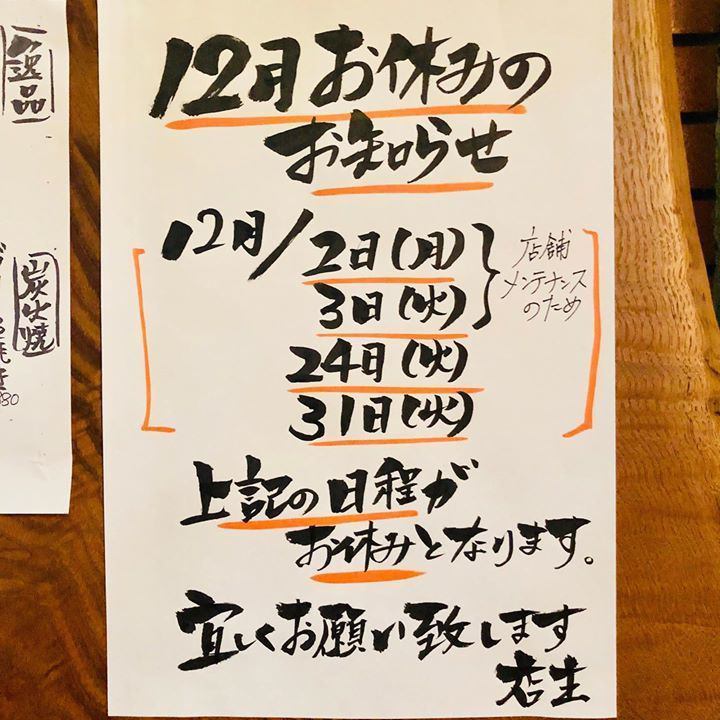 12月お休みの
お知らせ
12月/2日(月)
3日(火)
24日(火)
31日(火)
店舗
メンテナンス
のため
上記の日程が
お休みとなります。
宜しくお願い致します
店主
逸品
炭火焼